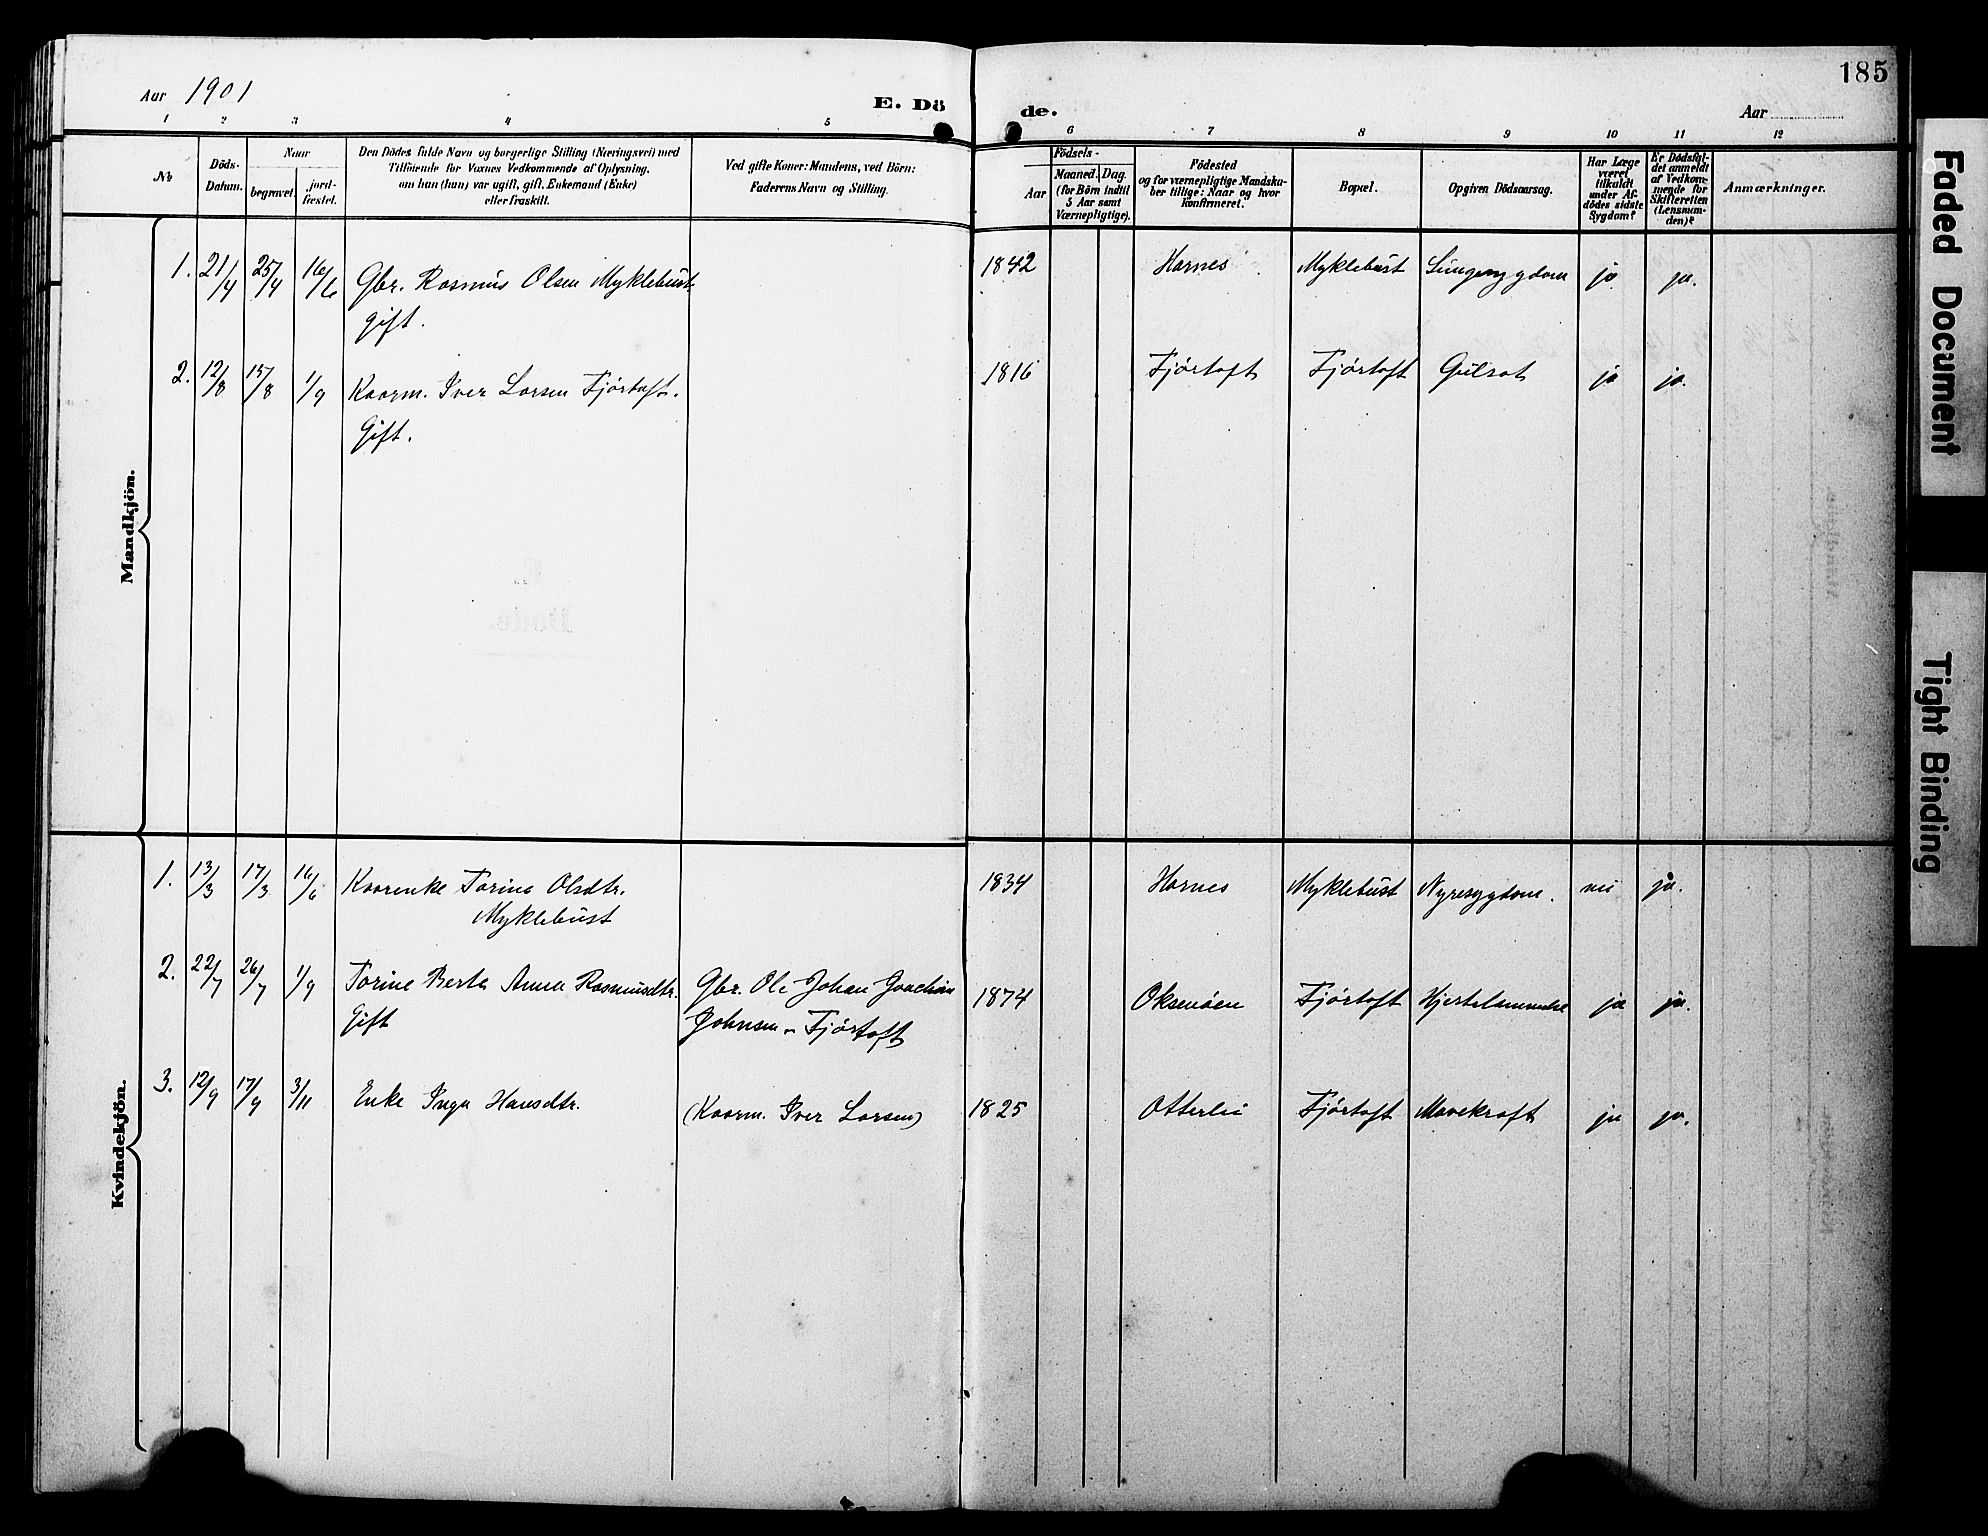 Aar 1901
E. Dö
de.
Aar
185
1 2 3 4 5
6 7 8 9 10 11 12
No
Döds-
Datum.
Naar
begravet.
jord-
fæstet.
Den Dödes fulde Navn og borgerlige Stilling (Næringsvei) med
Tilföiende for Voxnes Vedkommende af Oplysning,
om han (hun) var ugift, gift, Enkemand (Enke)
eller fraskilt.
Ved gifte Koner: Mandens, ved Börn:
Faderens Navn og Stilling.
Födsels-
Aar
Maaned. Dag.
(for Börn indtil
5 Aar samt
Værnepligtige).
Födested
og for værnepligtige Mandska-
ber tillige: Naar og hvor
konfirmeret.
Bopæl.
Opgiven Dödsaarsag.
Har Læge
været
tilkaldt
under Af-
dödes sidste
Sygdom?
Er Dödsfal-
det anmeldt
af Vedkom-
mende for
Skifteretten
(Lensman-
den)?
Anmærkninger.
Mandkjön.
1. 21/4 25/4 16/6 Gbr. Rasmus Olsen Myklebust. 1842 Harnes Myklebust Lungesygdom ja ja.
gift.
2. 12/8 15/8 1/9 Kaarm. Iver Larsen Fjörtoft. 1816 Fjörtoft Fjörtoft Gulsot ja ja.
Gift.
Kvindekjön.
1. 13/3 17/3 16/6 Kaarenke Torine Olsdtr. 1834 Harnes Myklebust Nyresygdom. nei ja.
Myklebust
2. 22/7 26/7 1/9 Torine Berte Anna Rasmusdtr. Gbr. Ole Johan Joachim 1874 Oksenöen Fjörtoft Hjertelammelse ja ja.
Gift Johnsen - Fjörtoft
3. 12/9 17/9 3/11 Enke Inga Hansdtr. (Kaarm. Iver Larsen) 1825 Otterlei Fjörtoft Mavekraft ja ja.
Faded Document
Tight Binding